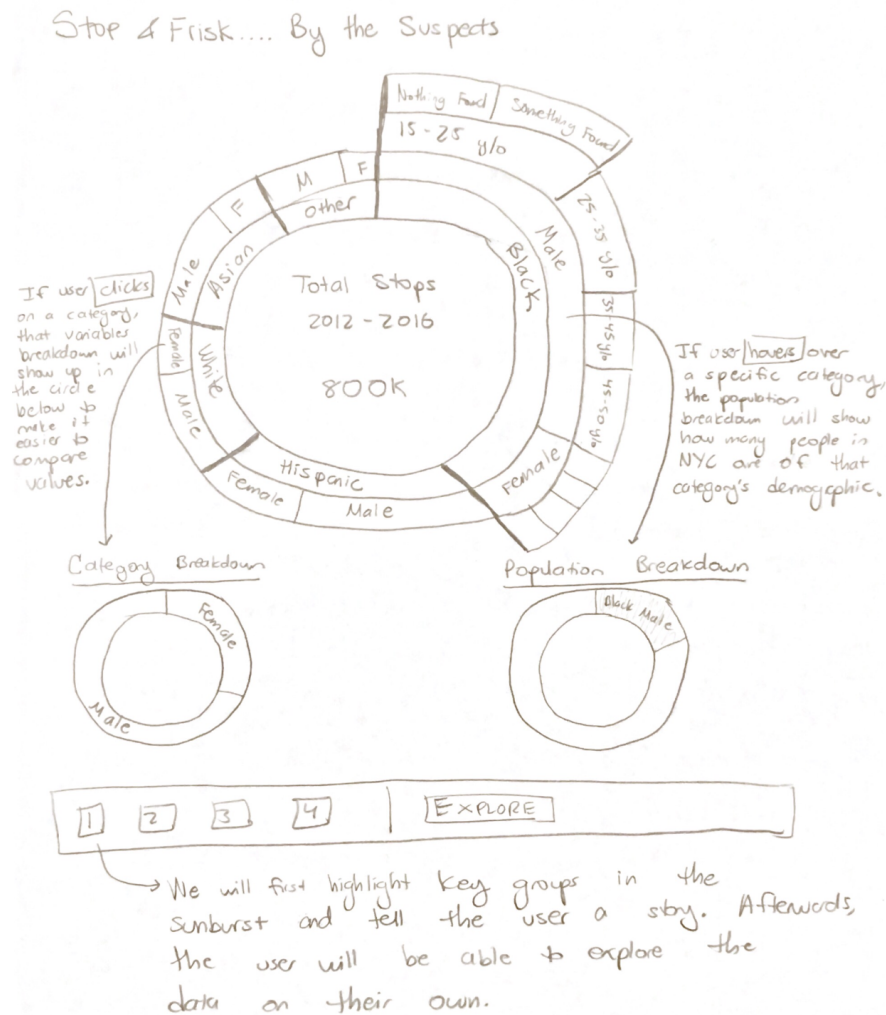 Stop & Frisk.... By the Suspects
Nothing Found
Something Found
15-25 y/o
25-35 y/o
35-45 y/o
45-50 y/o
M
F
Other
Male
F
Asian
Male
Black
Female
Female
White
Male
Hispanic
Female
Male
Total Stops
2012-2016
800K
If user clicks
on a category,
that variables
breakdown will
show up in
the circle
below to
make it
easier to
compare
values.
If user hovers over
a specific category,
the population
breakdown will show
how many people in
NYC are of that
category's demographic.
Category Breakdown
Female
Male
Population Breakdown
Black Male
1 2 3 4 EXPLORE
We will first highlight key groups in the
sunburst and tell the user a story. Afterwards,
the user will be able to explore the
data on their own.